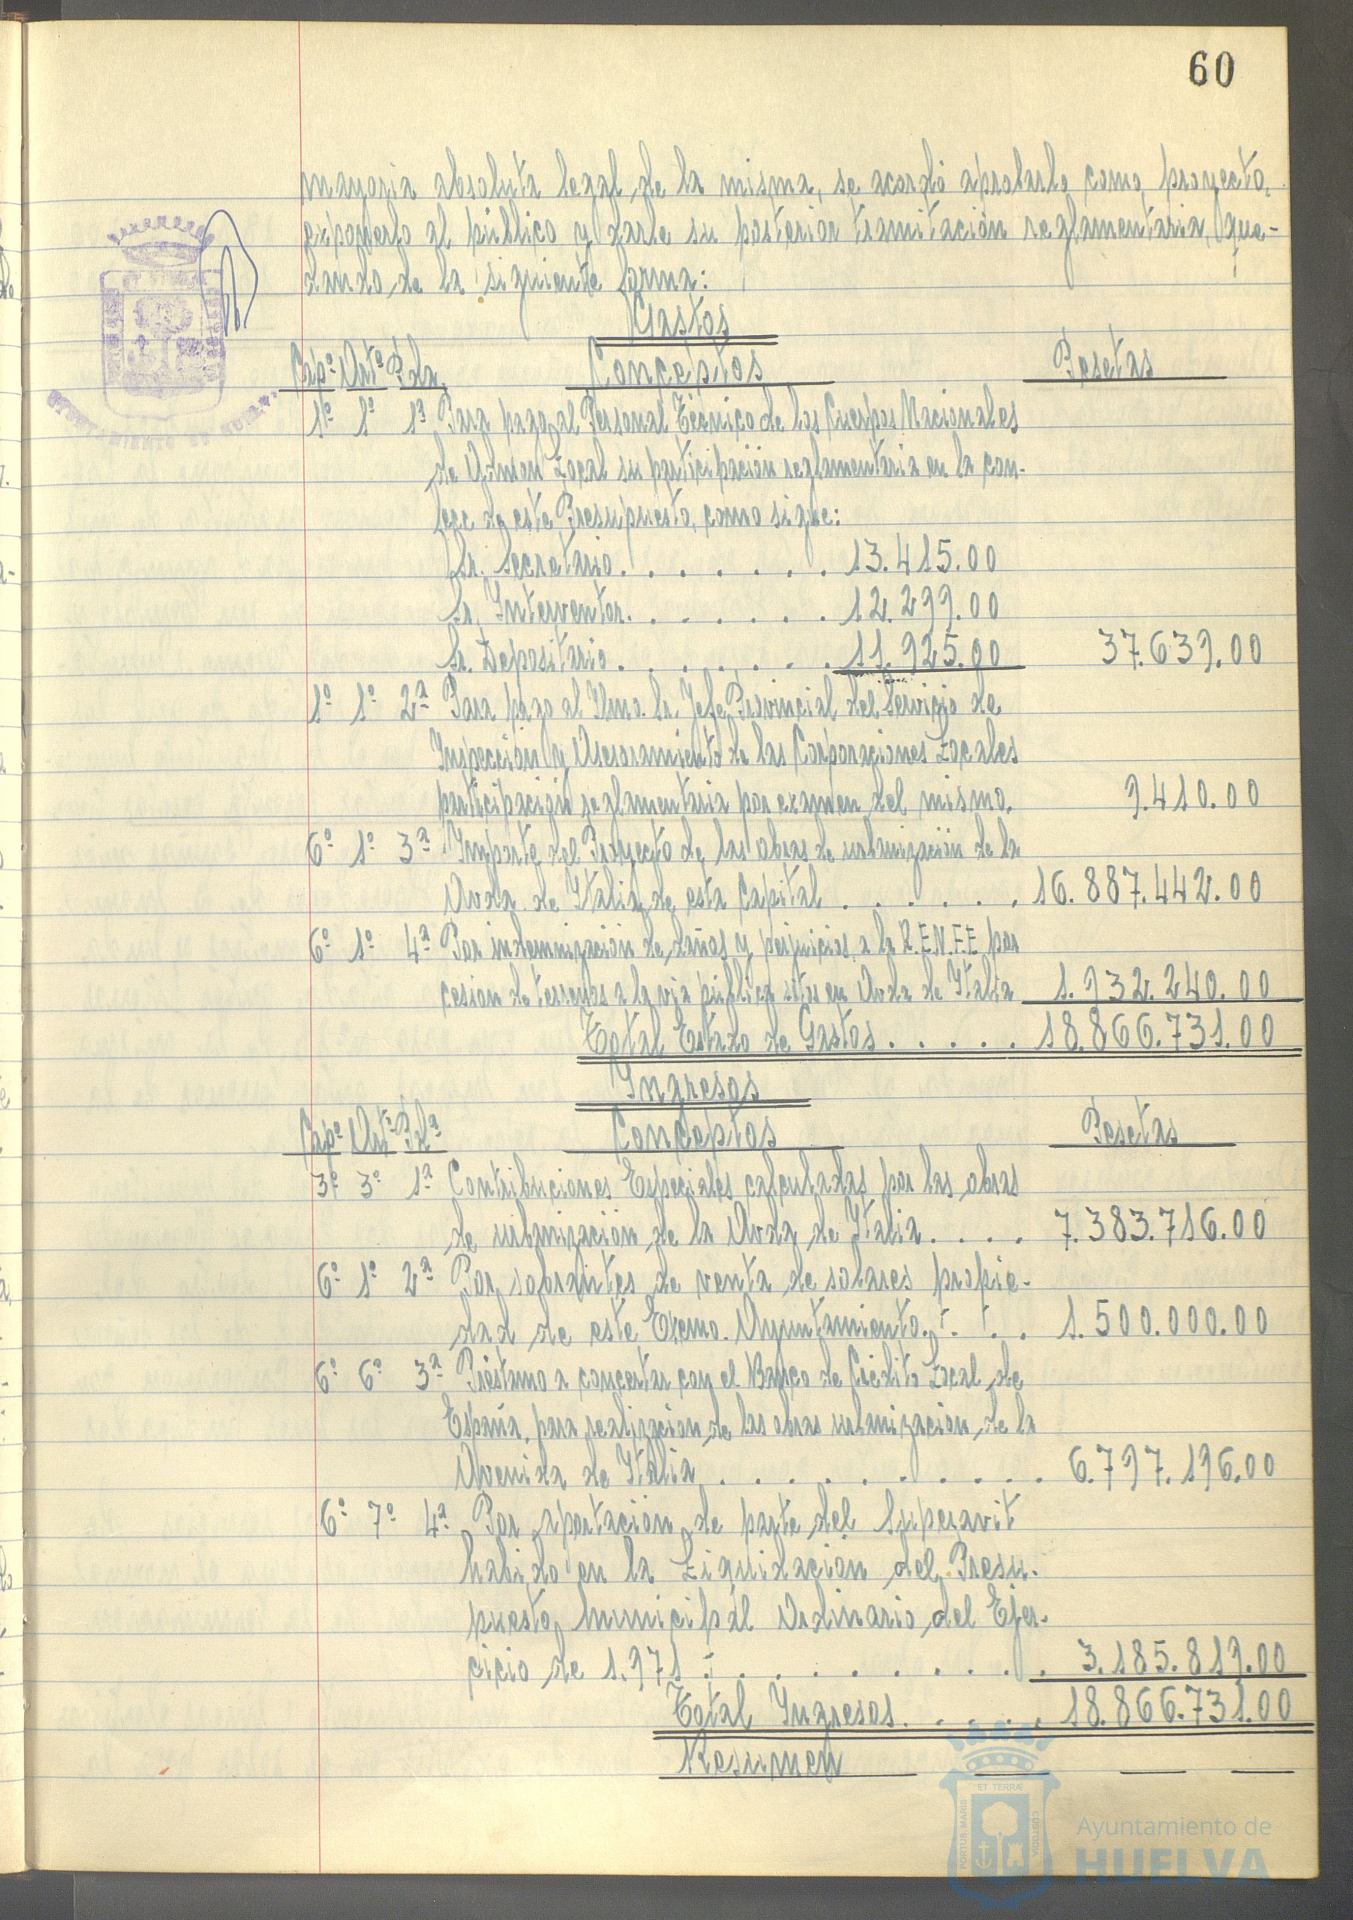 60
mayoria absoluta legal de la misma, se acordó aprobarlo como proyecto,
exponerlo al público y darle su posterior tramitación reglamentaria, que-
dando de la siguiente forma:
Gastos
Capº Artº Pda. Conceptos Pesetas
1º 1º 1ª Para pago al Personal Técnico de los Cuerpos Nacionales
de Admon Local su participación reglamentaria en la con-
fecc de este Presupuesto, como sigue:
Sr. Secretario. . . . . . . 13.415.00
Sr. Interventor. . . . . . . 12.299.00
Sr. Depositario . . . . . . . 11.925.00 37.639.00
1º 1º 2ª Para pago al Ilmo. Sr. Jefe Provincial del Servicio de
Inspección y Asesoramiento de las Corporaciones Locales
participación reglamentaria por examen del mismo. 9.410.00
6º 1º 3ª Importe del Proyecto de las obras de urbanización de la
Avda. de Italia de esta Capital . . . . . . 16.887.442.00
6º 1º 4ª Por indemnización de daños y perjuicios a la R.E.N.F.E por
cesion de terrenos a la via pública sitos en Avda de Italia 1.932.240.00
Total Estado de Gastos . . . . . 18.866.731.00
Ingresos
Capº Artº Pdª Conceptos Pesetas
3º 3º 1ª Contribuciones Especiales calculadas por las obras
de urbanización de la Avda de Italia . . . . 7.383.716.00
6º 1º 2ª Por sobrantes de venta de solares propie-
dad de este Excmo. Ayuntamiento. . . . . 1.500.000.00
6º 6º 3ª Préstamo a concertar con el Banco de Crédito Local de
España, para realización de las obras urbanización de la
Avenida de Italia . . . . . . . . . . . 6.797.196.00
6º 7º 4ª Por aportación de parte del Superavit
habido en la Liquidación del Presu-
puesto Municipal Ordinario del Ejer-
cicio de 1.971 . . . . . . . . . . 3.185.819.00
Total Ingresos. . . . . 18.866.731.00
Resumen
AYUNTAMIENTO DE HUELVA
PORTUS MARIS ET TERRÆ CUSTODIA
Ayuntamiento de
HUELVA